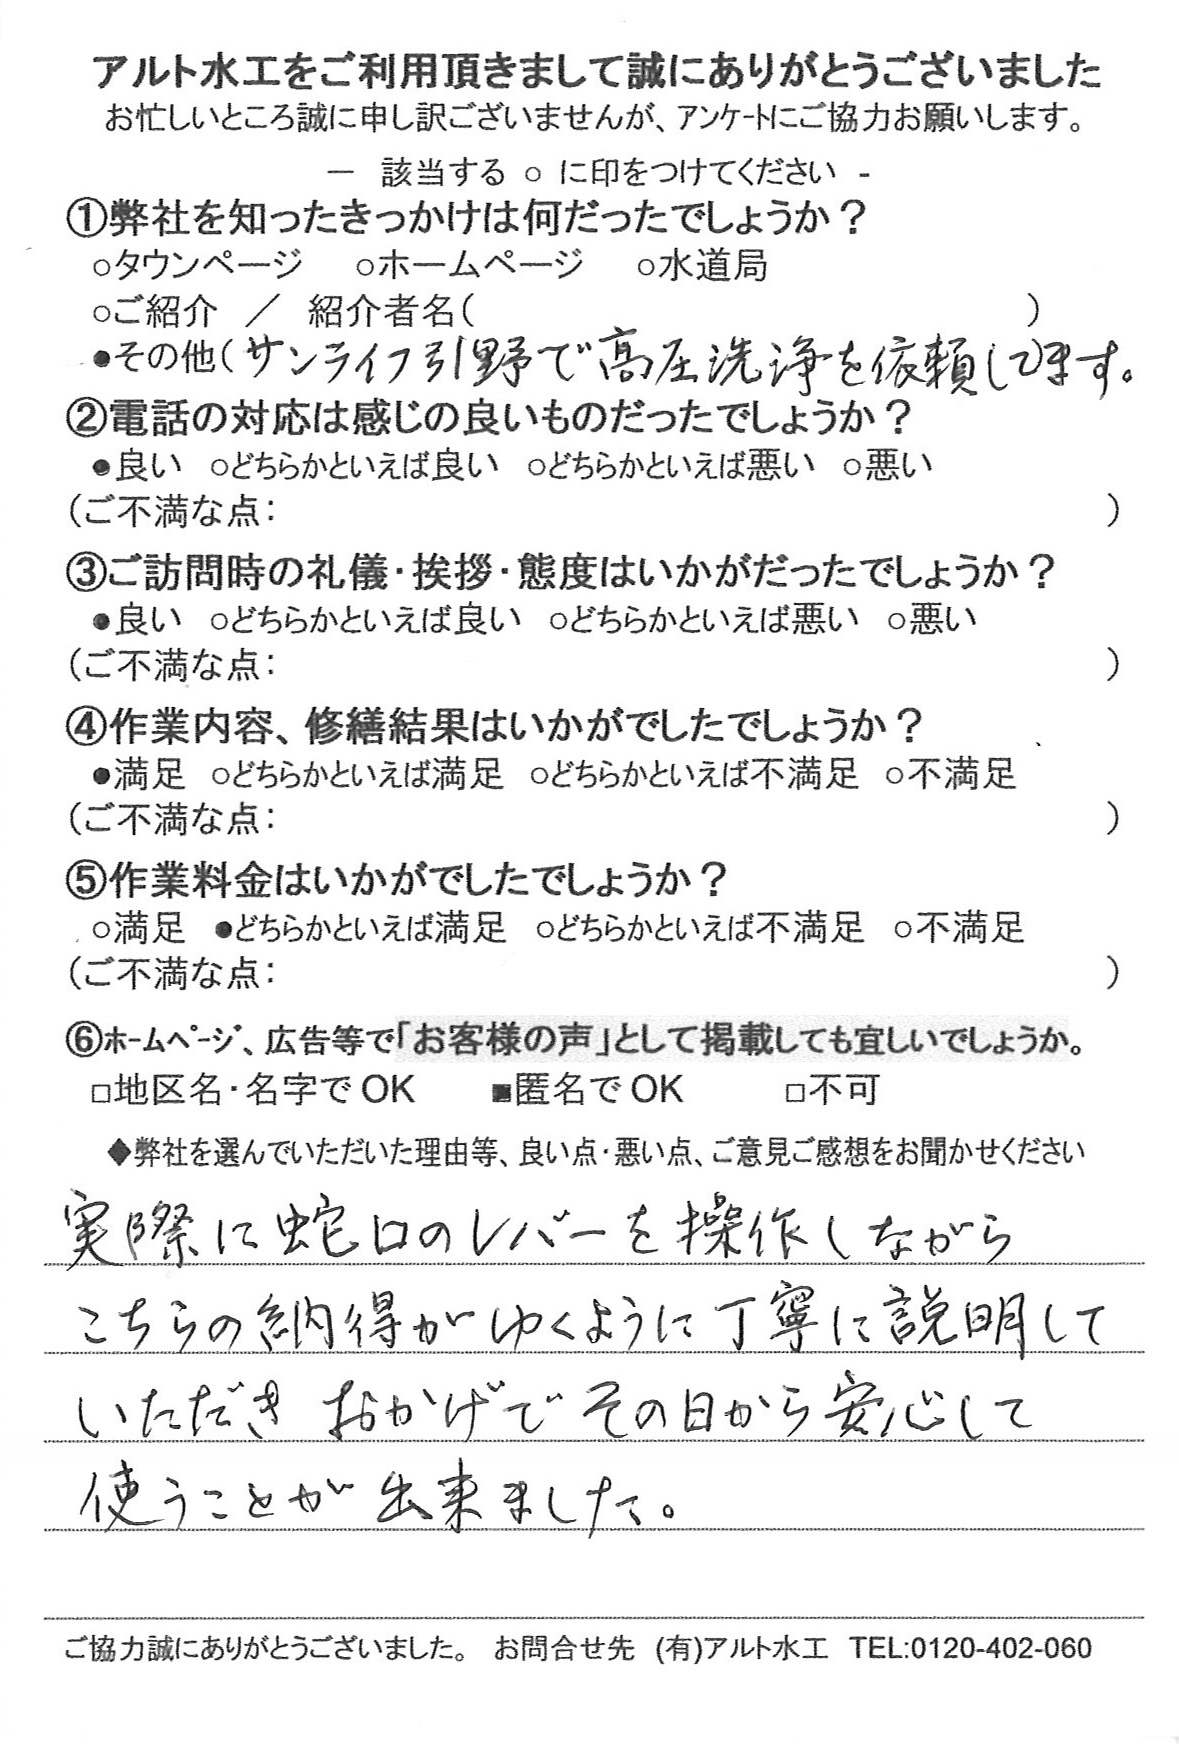 アルト水工をご利用頂きまして誠にありがとうございました
お忙しいところ誠に申し訳ございませんが、アンケートにご協力お願いします。
－ 該当する ○ に印をつけてください -
①弊社を知ったきっかけは何だったでしょうか？
○タウンページ ○ホームページ ○水道局
○ご紹介 ／ 紹介者名( )
●その他(サンライフ引野で高圧洗浄を依頼してます。)
②電話の対応は感じの良いものだったでしょうか？
●良い ○どちらかといえば良い ○どちらかといえば悪い ○悪い
(ご不満な点： )
③ご訪問時の礼儀・挨拶・態度はいかがだったでしょうか？
●良い ○どちらかといえば良い ○どちらかといえば悪い ○悪い
(ご不満な点： )
④作業内容、修繕結果はいかがでしたでしょうか？
●満足 ○どちらかといえば満足 ○どちらかといえば不満足 ○不満足
(ご不満な点： )
⑤作業料金はいかがでしたでしょうか？
○満足 ●どちらかといえば満足 ○どちらかといえば不満足 ○不満足
(ご不満な点： )
⑥ﾎｰﾑﾍﾟｰｼﾞ、広告等で「お客様の声」として掲載しても宜しいでしょうか。
□地区名・名字でOK ■匿名でOK □不可
◆弊社を選んでいただいた理由等、良い点・悪い点、ご意見ご感想をお聞かせください
実際に蛇口のレバーを操作しながら
こちらの納得がゆくように丁寧に説明して
いただき おかげで その日から安心して
使うことが出来ました。
ご協力誠にありがとうございました。 お問合せ先 (有)アルト水工 TEL:0120-402-060